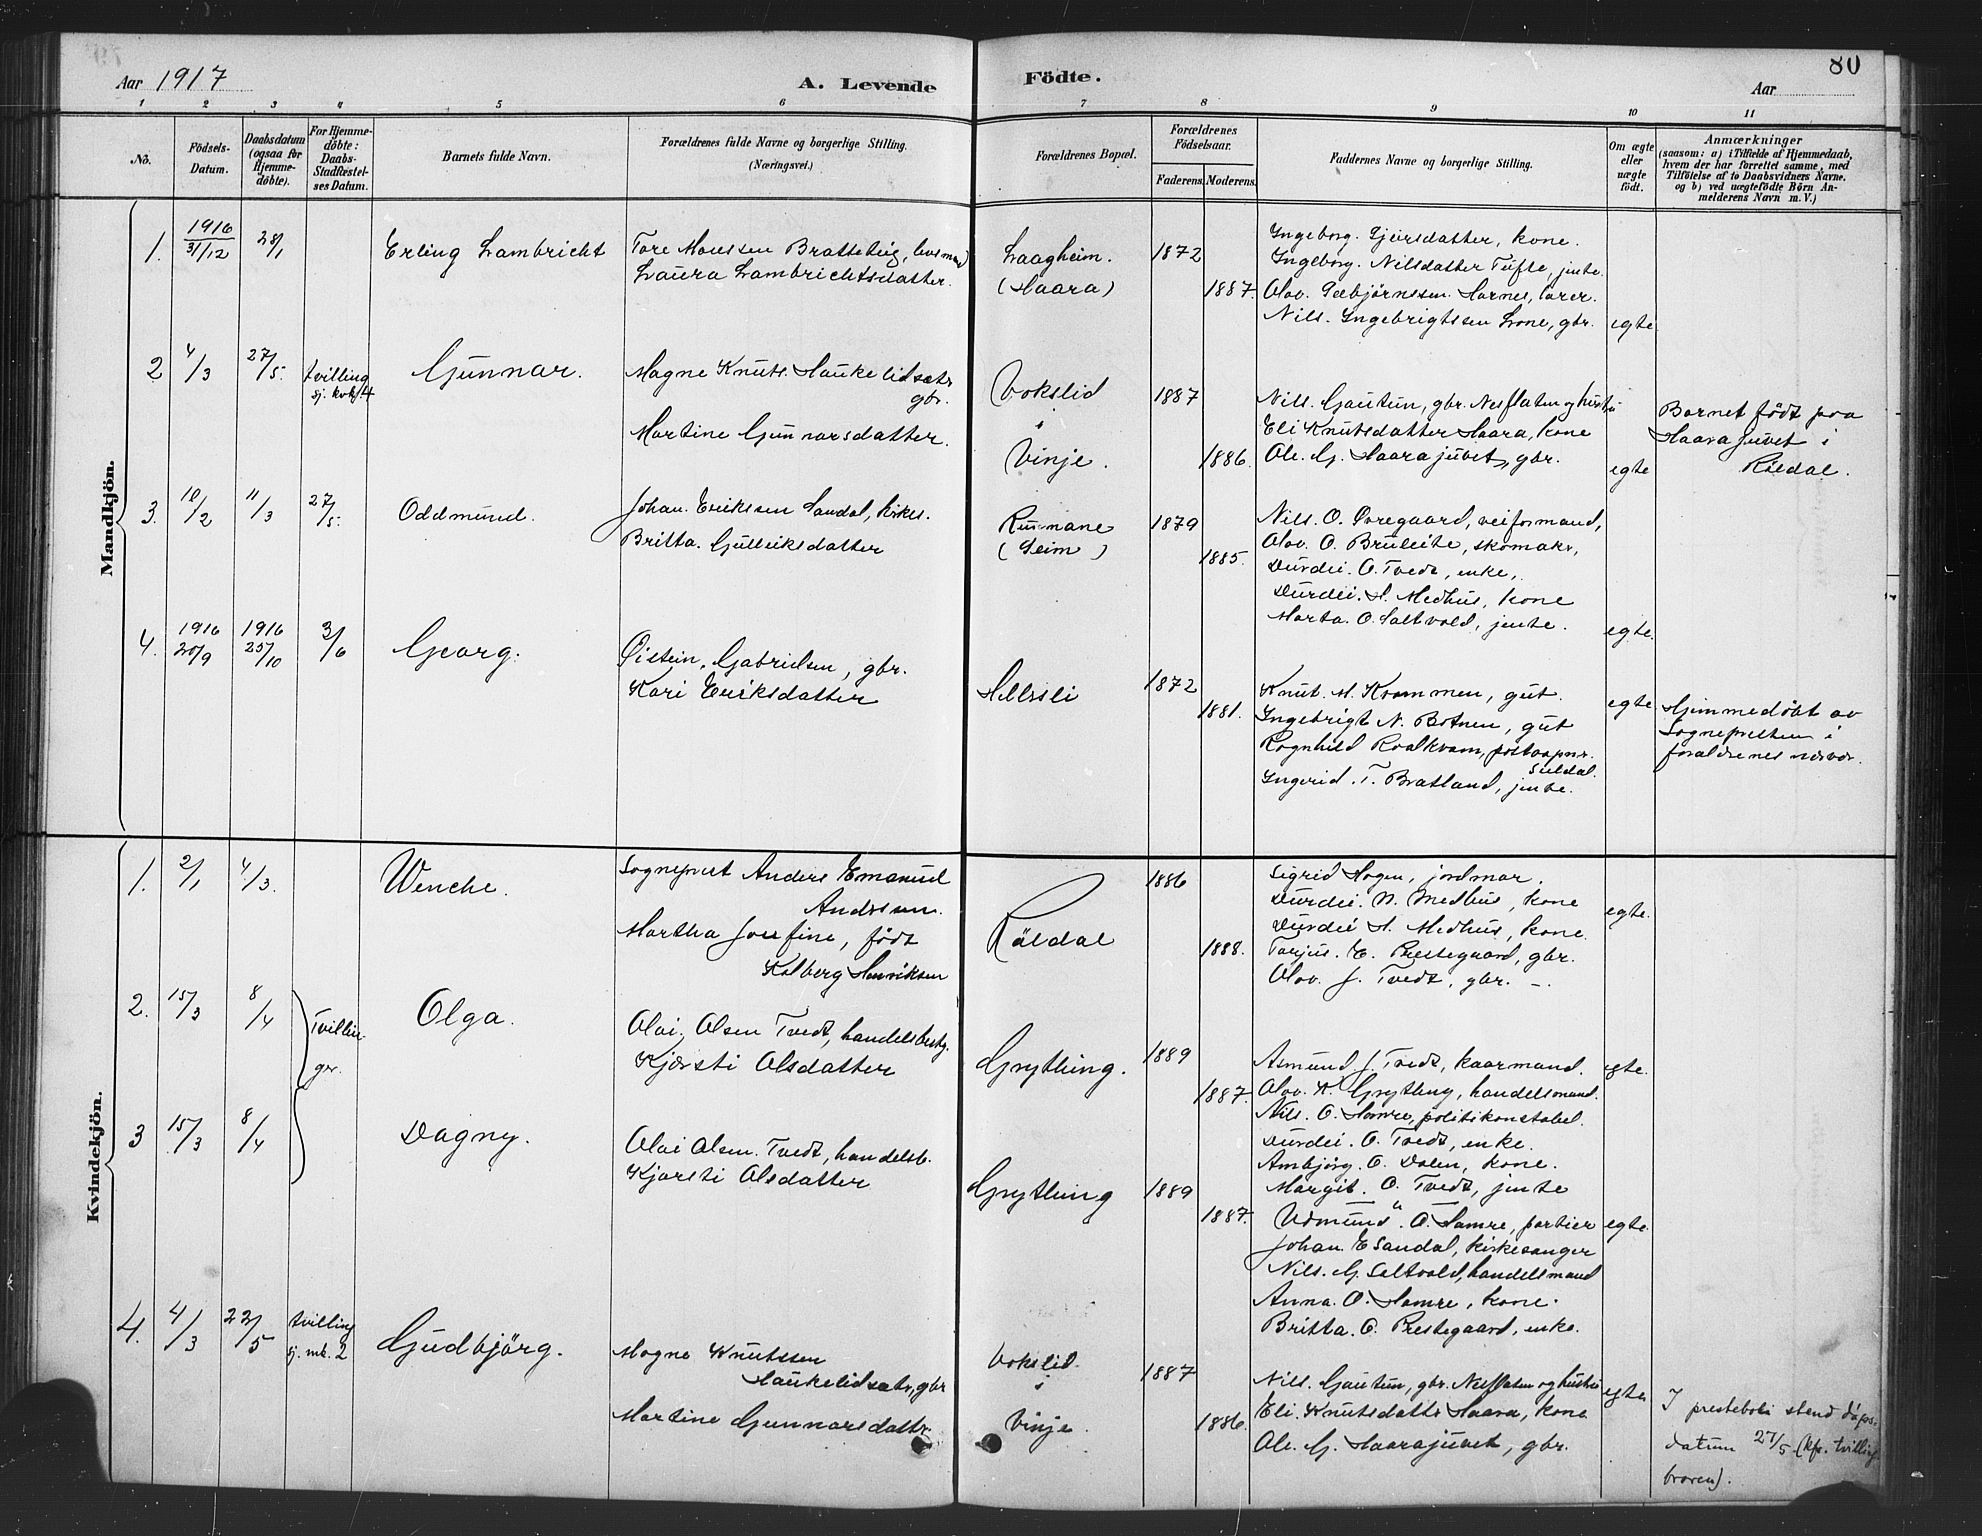 80
Aar 1917
A. Levende
Födte.
Aar
1 2 3 4 5 6 7 8 9 10 11
No.
Födsels-Datum.
Daabsdatum (ogsaa för Hjemme-döbte).
For Hjemme-döbte: Daabs-Stadfæstel-ses Datum.
Barnets fulde Navn.
Forældrenes fulde Navne og borgerlige Stilling.
(Næringsvei.)
Forældrenes Bopæl.
Forældrenes Födselsaar.
Faderens. Moderens.
Faddernes Navne og borgerlige Stilling.
Om ægte eller uægte födt.
Anmærkninger
(saasom: a) i Tilfælde af Hjemmedaab,
hvem der har forrettet samme, med
Tilföielse af to Daabsvidners Navne,
og b) ved uægtefödte Börn An-
melderens Navn m. V.)
Mandkjön.
1. 1916 31/12 28/1 Erling Lambricht
Tore Monssen Bratteteig,
Laura Lambrichtsdatter.
Laagheim.
(Haara)
1872
1887.
Ingeborg. Gjeirsdatter, kone.
Ingeborg. Nilsdatter Tufte, jente.
Olov. Torbjörnssen Hornes, lærer.
Nils. Ingebrigtssen Lone, gbr.
egte
2 4/3 27/5. tvilling
sj. kvkj. 4
Gunnar.
Magne Knuts. Haukelidsætr
gbr.
Martine Gunnarsdatter.
Vokslid
i
Vinje.
1887
1886.
Nils. Gautun, gbr. Nesflaten og hustru
Eli Knutsdatter Haara, kone
Ole. G. Haarajuvet, gbr.
egte
Barnet födt paa
Haarajuvet i
Röldal.
3. 10/2 11/3 27/5. Oddmund.
Johan. Erikssen Sandal, kirkes.
Britta. Gulleiksdatter
Rusmane
(Seim)
1879
1885.
Nils. O. Övregaard, veiformand,
Olov. O. Bruleite, skomakr,
Durdei. O. Tvedt, enke,
Durdei. H. Medhus, kone
Marta. O. Saltvold, jente.
egte.
4. 1916 20/9 1916 25/10 3/6 Georg.
Øistein. Gabrielsen, gbr.
Kari Eriksdatter
Hellsli
1872
1881.
Knut. H. Krammen, gut.
Ingebrigt N. Botnen, gut
Ragnhild Roalkvam, postaapnr.
Suldal.
Ingerid. T. Bratland, jente.
egte
Hjemmedöbt av
Sognepresten i
forældrenes nærvær.
Kvindekjön.
1. 2/1 4/3. Wenche.
Sogneprest Anders Emanuel
Andersen.
Martha Josefine, födt
Kolberg Henriksen
Röldal
1886
1888.
Sigrid Hogen, jordmor.
Durdei. N. Medhus, kone
Durdei H. Medhus, kone.
Tarjus. E. Prestegaard, gbr.
Olov. J. Tvedt, gbr. –.
egte.
2. 15/3 8/4 Tvillin-
ger.
Olga.
Olai. Olsen Tvedt, handelsbesty.
Kjærsti Olsdatter
Grytting.
1889
1887.
Asmund J. Tvedt, kaarmand.
Olov. K. Grytting, handelsmand.
Nils. O. Hamre, politikonstabel.
Durdei. O. Tvedt, enke.
Ambjörg. O. Dalen, kone.
Margit. O. Tvedt, jente
egte.
3 15/3 8/4 Dagny.
Olai Olsen. Tvedt, handelsb.
Kjærsti Olsdatter
Grytting
1889
1887.
O. Hamre, portier
Johan. E Sandal, kirkesanger
Nils. G. Saltvold, handelsmand
Anna. O. Hamre, kone.
Britta. O. Prestegaard, enke.
egte.
4. 4/3 22/5 tvilling
sj. mk. 2
Gudbjörg.
Magne Knutssen
Haukelidsætr, gbr
Martine Gunnarsdattr.
Vokslid
i
Vinje.
1887
1886.
Nils. Gautun, gbr. Nesflaten og hustru
Eli. Knutsdattr Haara, kone
Ole. G. Haarajuvet, gbr.
egte
I presteboki stend dåps-
datum 27/5. (kfr. tvilling
broren).